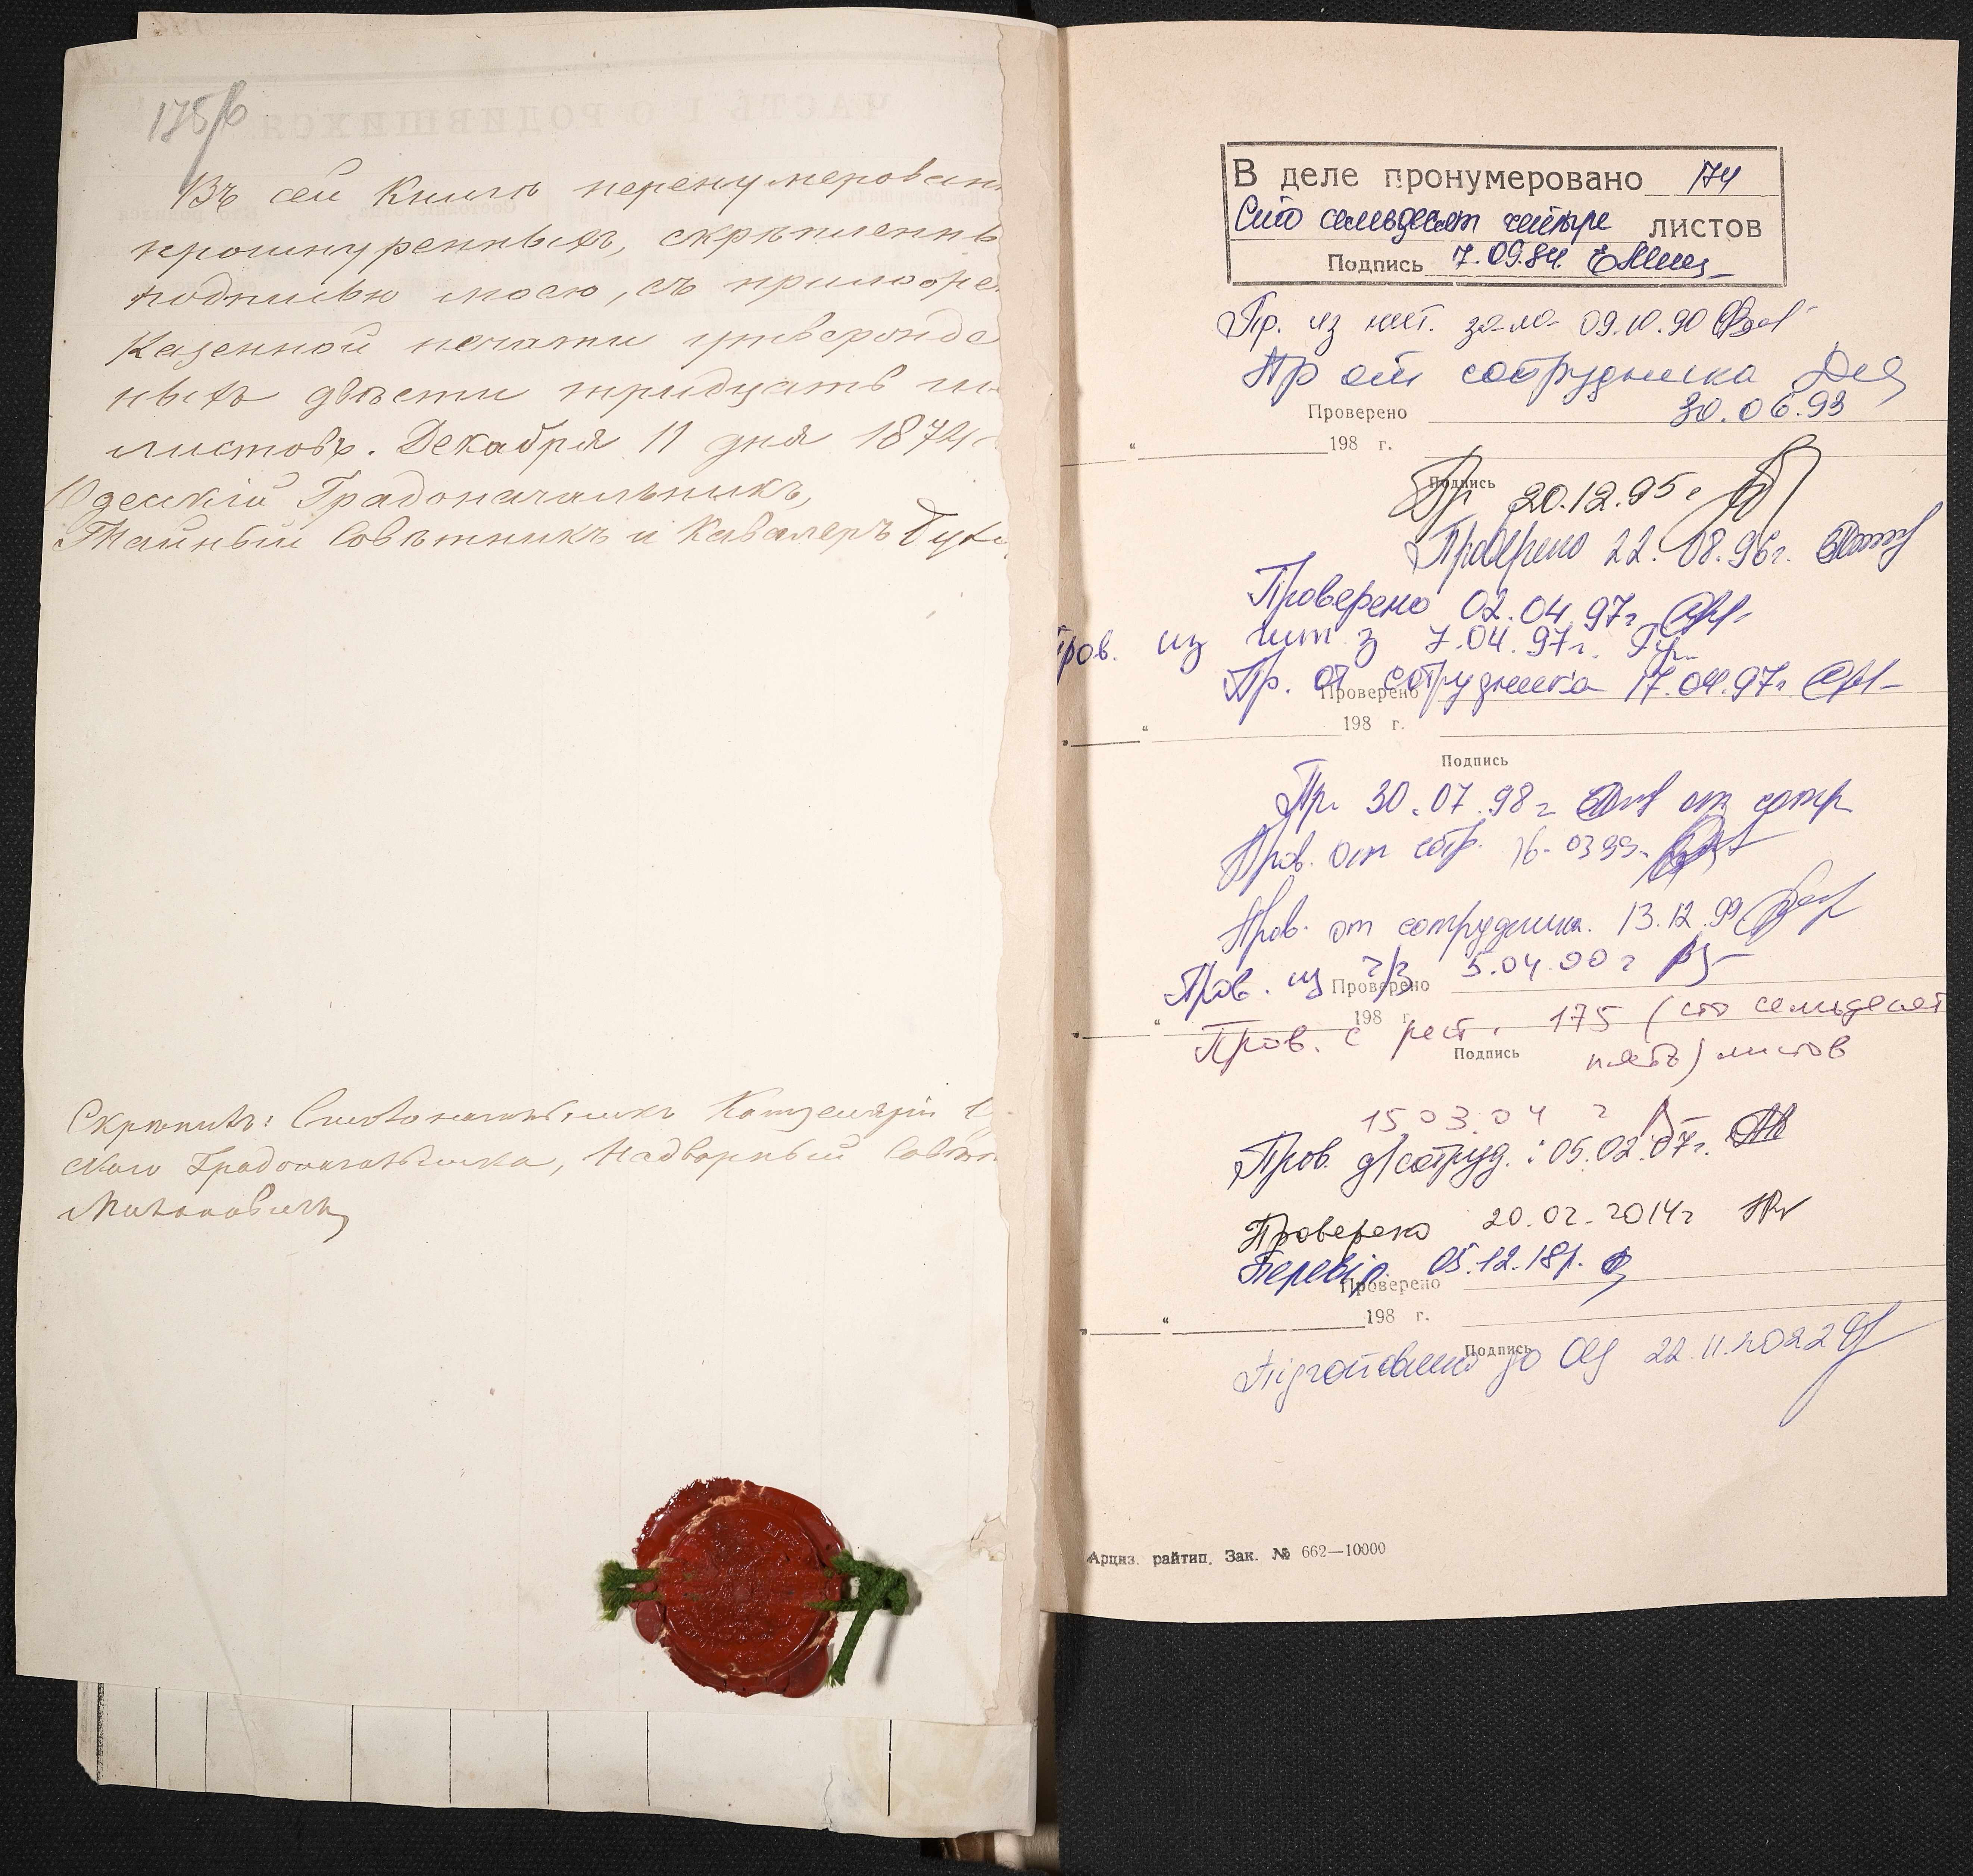 175/б
Въ сей Книгѣ перенумерован
прошнуренныхъ, скрѣпленны
подписью моею, съ приложе
Казенной печати утвержде
ныхъ двѣсти тридцать
листовъ. Декабря 11 дня 1874
Одескій Градоначальникъ,
Тайный Совѣтникъ и Кавалеръ Бух
Скрѣпилъ: Столоначальникъ Канцеляріи
скаго Градоначальника, Надворный Совѣт
ЧАСТЬ I О РОДИВШИХСЯ.
В деле пронумеровано 174
Сто семьдесят четыре листов
Подпись 7.09.84.
Пр. из чит. зала 09.10.90
Пр от сотрудника
30.06.93
Проверено
" 198 г.
Подпись
Пр 20.12.95г
Проверено 22.08.96г.
Проверено 02.04.97г
Пров. из чит з 7.04.97г.
Пр. от сотрудника 17.04.97г
Проверено
" " 198 г.
Подпись
Пр. 30.07.98г от сотр
Пров. от сотр. 16.03 99
Пров. от сотрудника. 13.12.99
Пров. из ч/з 5.04.00г
Проверено
" " 198 г.
Пров. с рест. 175 (сто семьдесят
Подпись
пять) листов
15 03 04 г
Пров. д/сотруд.: 05.02.07г.
Проверено 20.02.2014г
Перевір. 05.12.18р.
Проверено
" " 198 г.
Подпись
Підготовлено до 22.11.2022
Арциз. райтип. Зак. № 662—10000